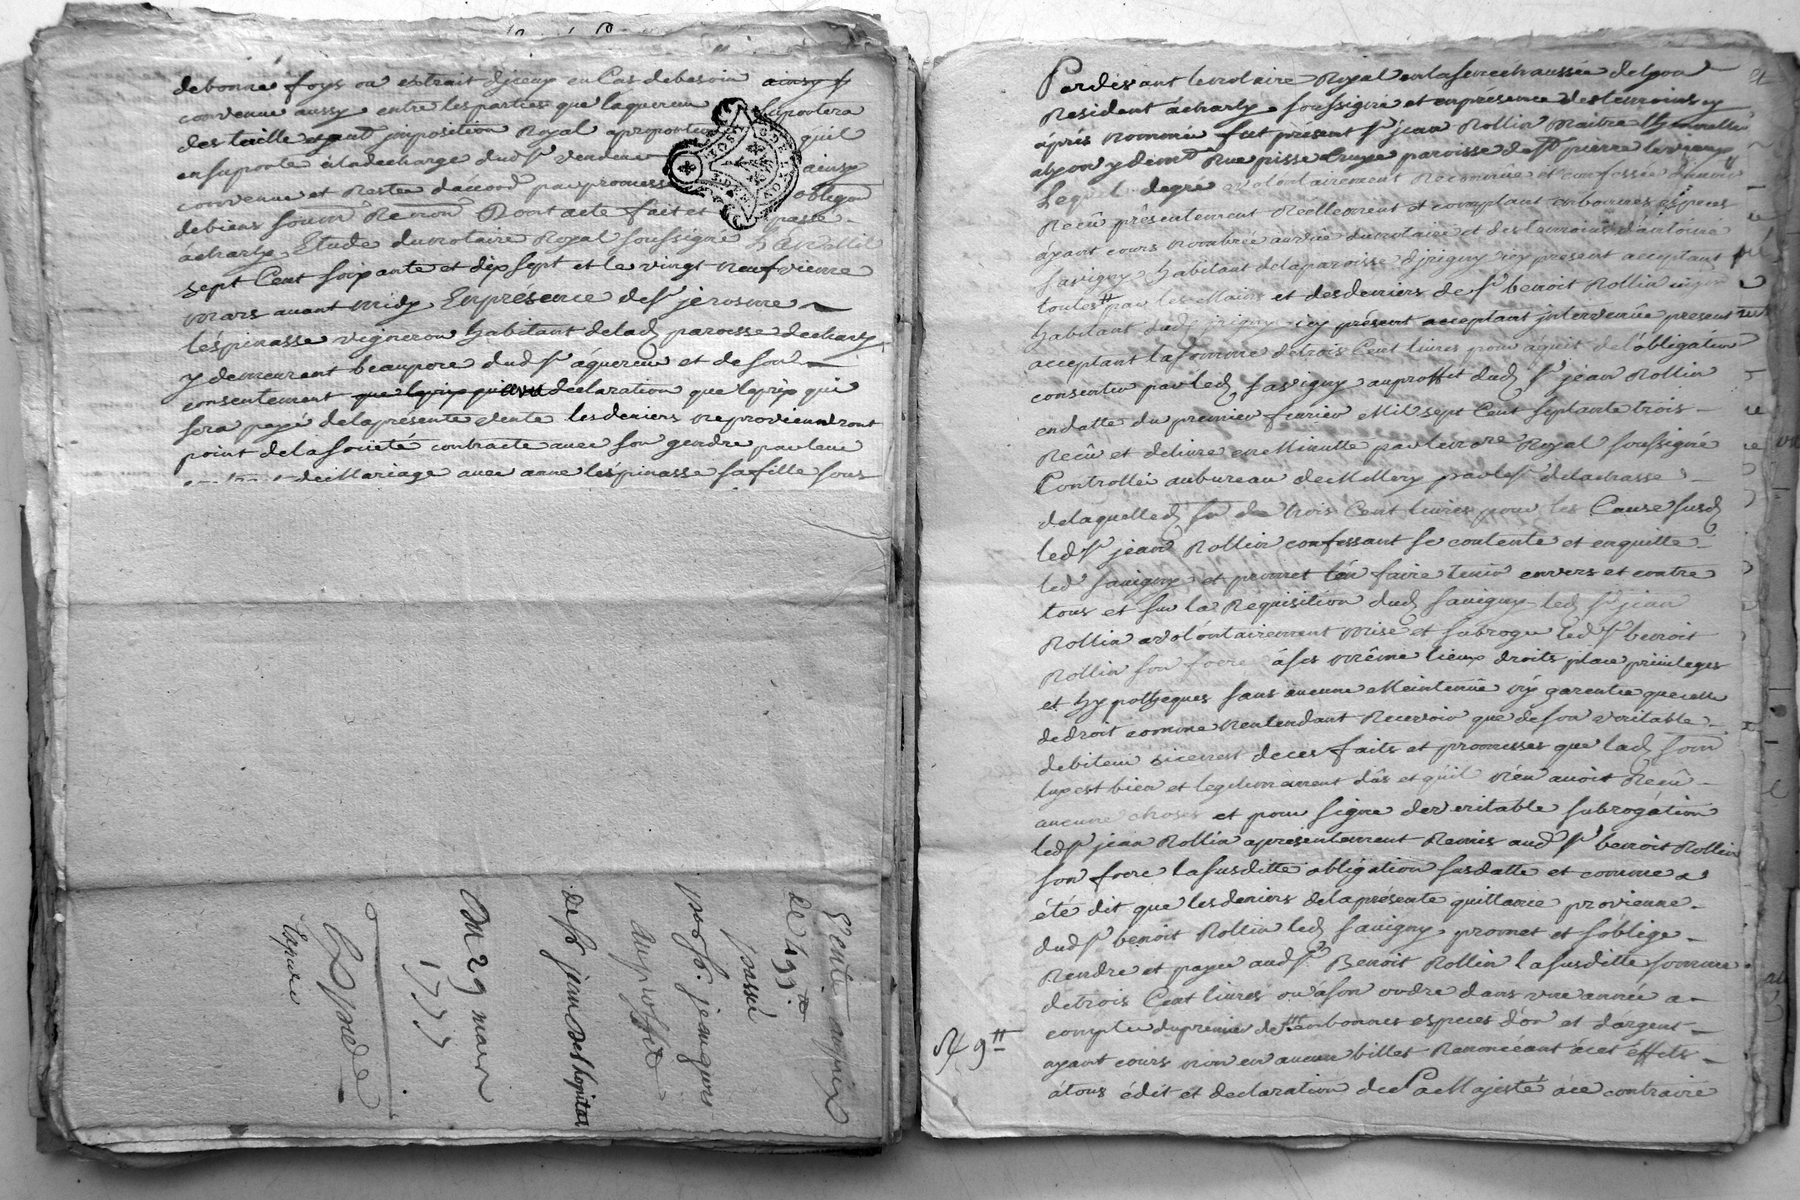 de bonne foys ou extrait d'jceux en Cas de besoin ainsy
convenue aussy entre les parties que laquereur suportera
des taille et autre jmposition Royal a proportion quil
en suporte à la decharge dud Sr vendeur ainsy
convenue et Restee daccord par promesse obligon
de biens soumon Renon Dont acte fait et passé
à charly Etude du notaire Royal soussigné Lan Mil
sept Cent soixante et dix sept et le vingt neufvieme
mars avant midy En présence de Sr jerosme
léspinasse vigneron habitant de lad paroisse de charly
y demeurant beaupere dud Sr aquereur et de son
consentement que le prix qui declaration que le prix qui
sera payé de la présente vente les deniers ne proviendront
point de la société contracte avec son gendre par leur
de Mariage avec anne lespinasse sa fille sous
Vente à
de 499tt
passé
par Sr. jean
au proffit
de Sr jean Delhopital
Du 29 mars
1777
Expédié
Pardevant le notaire Royal en la senechaussée de Lyon
Resident à charly soussigné et en présence des temoins cy
âprés Nommée fut présent Sr jean Rollin Maitre
a Lyon y demt Rue pisse Truye paroisse de St pierre le vieux
Lequel de gré volontairement Reconnue et confesse d'avoir
Recû présentement Réellement et comptant en bonnes éspeces
âyant cours nombrée a vûe du notaire et des temoins d'antoine
savigny habitant de la paroisse d'jrigny icy présent acceptant
toutes par les Mains et des deniers de Sr benoit Rollin
habitant dud jrigny icy présent acceptant jntervenûe present
acceptant la somme de trois Cent livres pour aquit de l'obligation
consentie par led savigny au proffit dud Sr jean Rollin
en datte du premier fevrier Mil sept Cent septante trois
Recû et delivre en Minutte par le no.re Royal soussigné
Controllé au bureau de Millery par le Sr delachasse
de laquelled so de trois Cent livres pour les Cause susd
led Sr jean Rollin confessant se contente et en quitte
led savigny et promet l'en faire tenir envers et contre
tous et sur la Requisition dud savigny led Sr jean
Rollin a volontairement mise et subroge led Sr benoit
Rollin son frere à ses même lieux droits place privileges
et hypotheques sans aucune Maintenüe ny garentie que celle
de droit comme n'entendant Recevoir que de son veritable
debiteur si cenest de ces faits et promesses que lad som
luy est bien et legitimement dûs et qu'il n'en avoit Recû
aucune choses et pour signe de veritable subrogation
led Sr jean Rollin a presentement Remis aud Sr benoit Rollin
son frere la susditte obligation susdatte et comme a
été dit que les deniers de la présente quittance provienne
dud Sr benoit Rollin led savigny promet et s'oblige
Rendre et payer aud Sr Benoit Rollin la susditte somme
de trois Cent livres ou à son ordre dans une année a
compter du premier de en bonnes especes d'or et d'argent
ayant cours non en aucun billet Renonceant à cet éffets
à tous édit et declaration de Sa Majesté à ce contraire
R 9tt